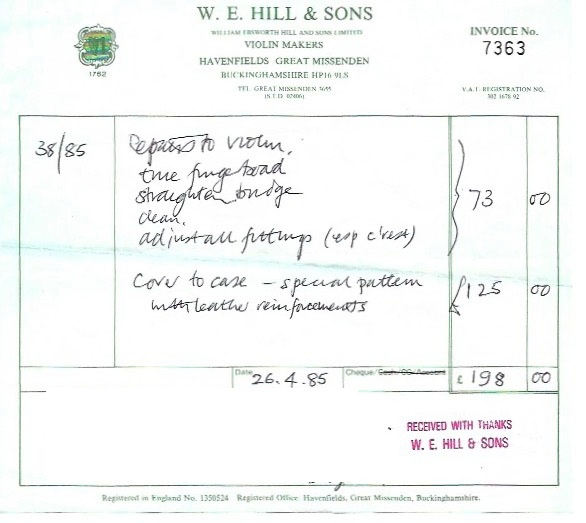 W. E. HILL & SONS
WILLIAM EBSWORTH HILL AND SONS LIMITED
VIOLIN MAKERS
HAVENFIELDS GREAT MISSENDEN
BUCKINGHAMSHIRE HP16 9LS
TEL. GREAT MISSENDEN 3655
(S.T.D. 02406)
1762
INVOICE No.
7363
V.A.T. REGISTRATION NO.
302 1678 92
38/85
Repairs to violin,
true fingerboard
straighten bridge
clean,
adjust all fittings (esp c'rest)
73 00
Cover to case - special pattern
with leather reinforcements
£125 00
Date 26.4.85
Cheque/Cash/CC/Account
£ 198 00
RECEIVED WITH THANKS
W. E. HILL & SONS
Registered in England No. 1350524 Registered Office Havenfields, Great Missenden, Buckinghamshire.